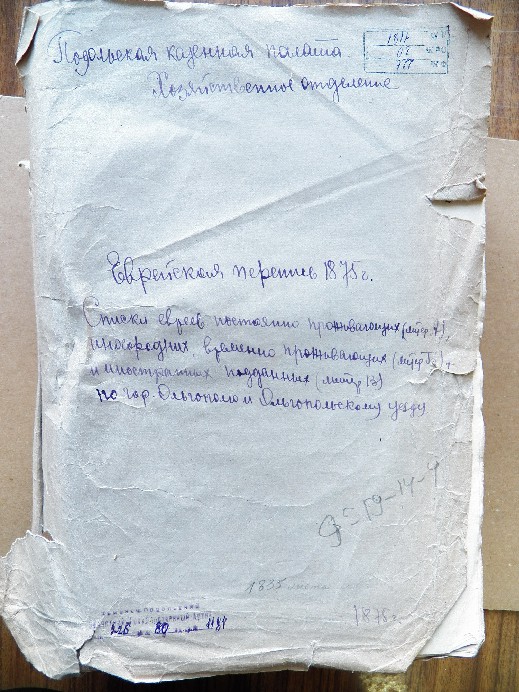 Подольская казенная палата
Хозяйственное отделение
Еврейская перепись 1875 г.
Списки евреев постоянно проживающих (литер А),
иногородних, временно проживающих (литер Б),
и иностранных подданных (литер В)
по гор. Ольгополю и Ольгопольскому уезду
1835
1875 г
226 80